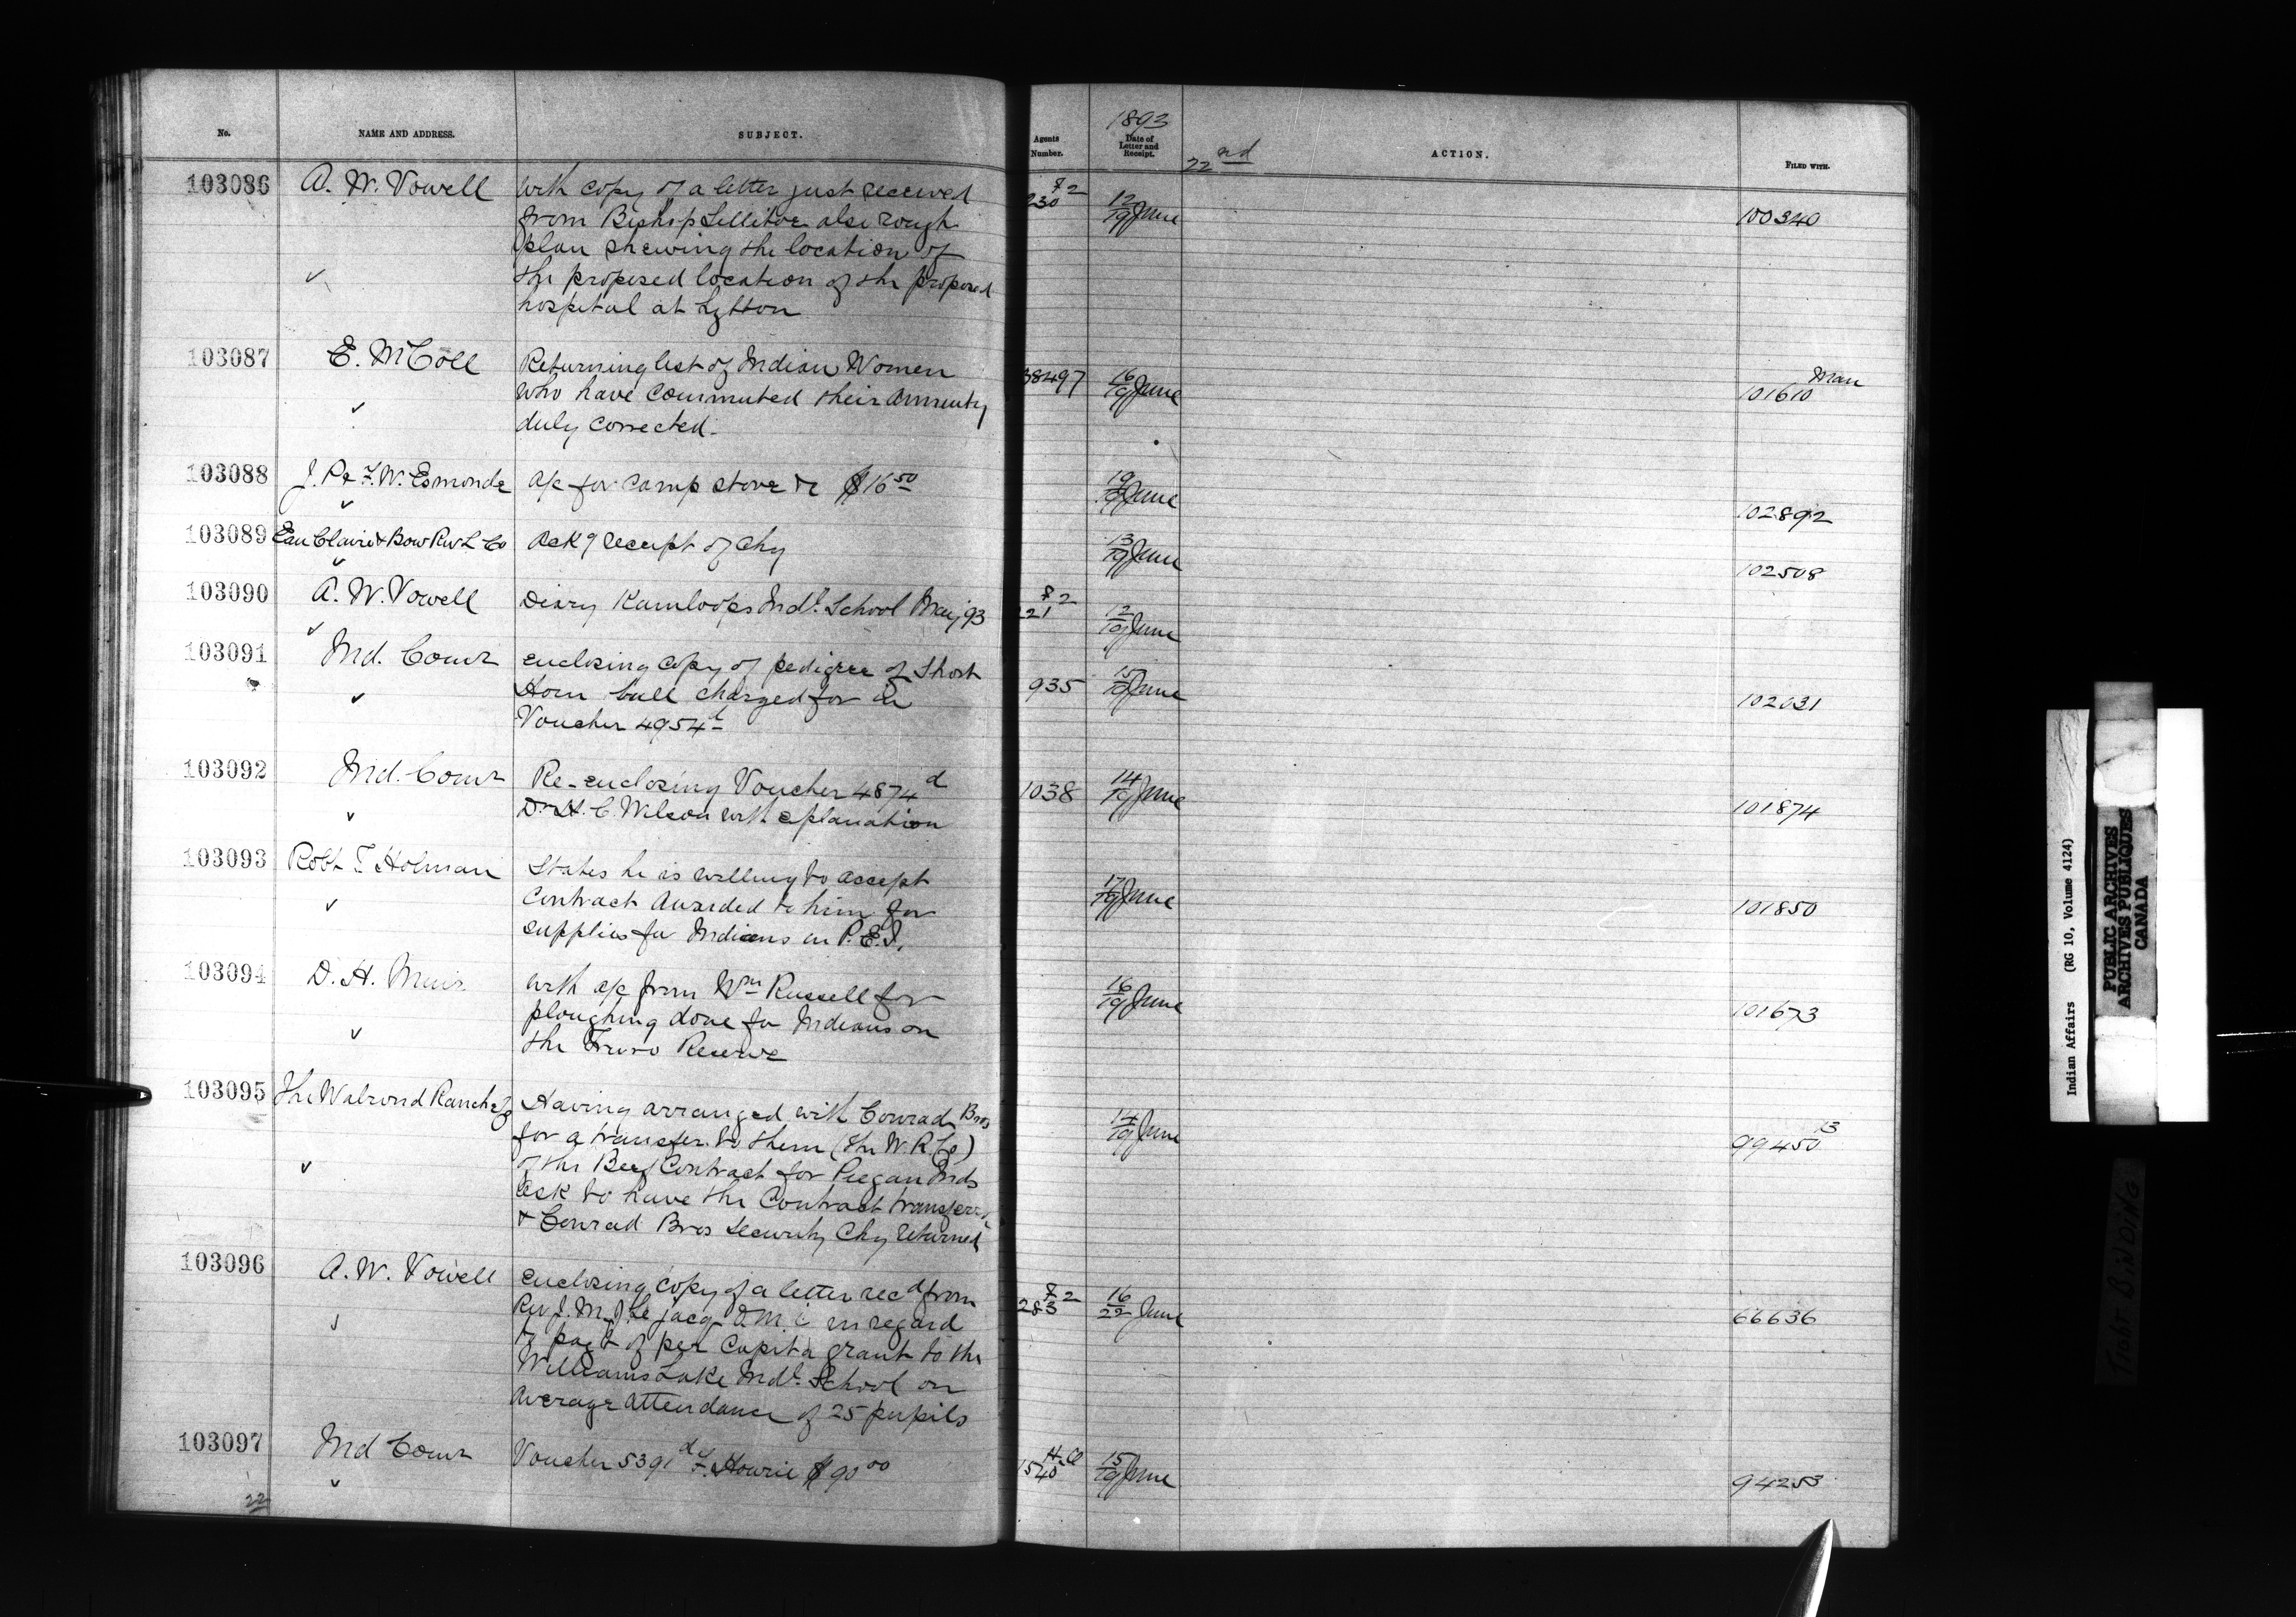 No. NAME AND ADDRESS. SUBJECT. Agents Number. 1893 Date of Letter and Receipt. 22nd ACTION. FILED WITH.
103086 A. W. Vowell with copy of a letter just received 230 F2 12/19 June 100340
from Bishop Sillitoe also rough
plan shewing the location of
✓ the proposed location of the proposed
hospital at Lytton
103087 E. McColl Returning list of Indian Women 38497 16/19 June 101610 Man
✓ who have commuted their annuity
duly corrected.
103088 J. R & F. W. Esmonde a/c for camp stove &c $16 50 19/19 June 102892
✓
103089 Eau Claire & Bow Riv L Co Ack g receipt of chq 13/19 June 102508
✓
103090 A. W. Vowell Diary Kamloops Indl. School May 93 221 F2 12/19 June
✓
103091 Ind. Comr enclosing copy of pedigree of Short 935 15/19 June 102031
✓ Horn bull charged for in
Voucher 4954
103092 Ind. Comr Re-enclosing Voucher 4874 d 1038 14/19 June 101874
✓ Dr H. C. Wilson with explanation
103093 Robt T Holman States he is willing to accept 17/19 June 101850
✓ contract awarded to him for
supplies for Indians in P.E.I.
103094 D. H. Muir with a/c from Wm Russell for 16/19 June 101673
✓ ploughing done for Indians on
the Truro Reserve
103095 The Walrond Ranche Co Having arranged with Conrad Bros 14/19 June 99450 13
for a transfer to them (the W. R. Co)
✓ of the Beef Contract for Piegan Inds
ask to have the Contract transferred
& Conrad Bros Security Chq returned
103096 A. W. Vowell enclosing copy of a letter recd from 283 F2 16/22 June 66636
✓ Rev J. M. J. Le jacq O.M.I. in regard
to payt of per capita grant to the
Williams Lake Indl. School on
average attendance of 25 pupils
103097 Ind Comr Voucher 5391 d F. Hourie $90 00 1540 15/19 June 94253
✓
22
Indian Affairs (RG 10, Volume 4124)
PUBLIC ARCHIVES
ARCHIVES PUBLIQUES
CANADA
TIGHT BINDING